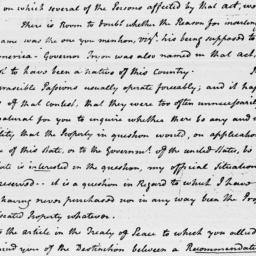 on which several of the Persons affected by that act, wo
There is Room to doubt whether the Reason for inserting
ame was the one you mention, Vizt. his being supposed to
merica - Governor Tryon was also named in that act,
to have been a native of this Country.
rascible Passions usually operate forceably; and it
of that contest, that they were too often unnecessarily
natural for you to enquire whether there be any and
lity that the Property in question would, on application
of this State, or to the Governmt. of the united States, be
ate is interested in the question, my official Situation
reserved - it is a question in Regard to which I have
having never purchased nor in any way been the Pro
scated Property whatever.
to the article in the Treaty of Peace to which you allud
mind you of the Distinction between a Recommendati